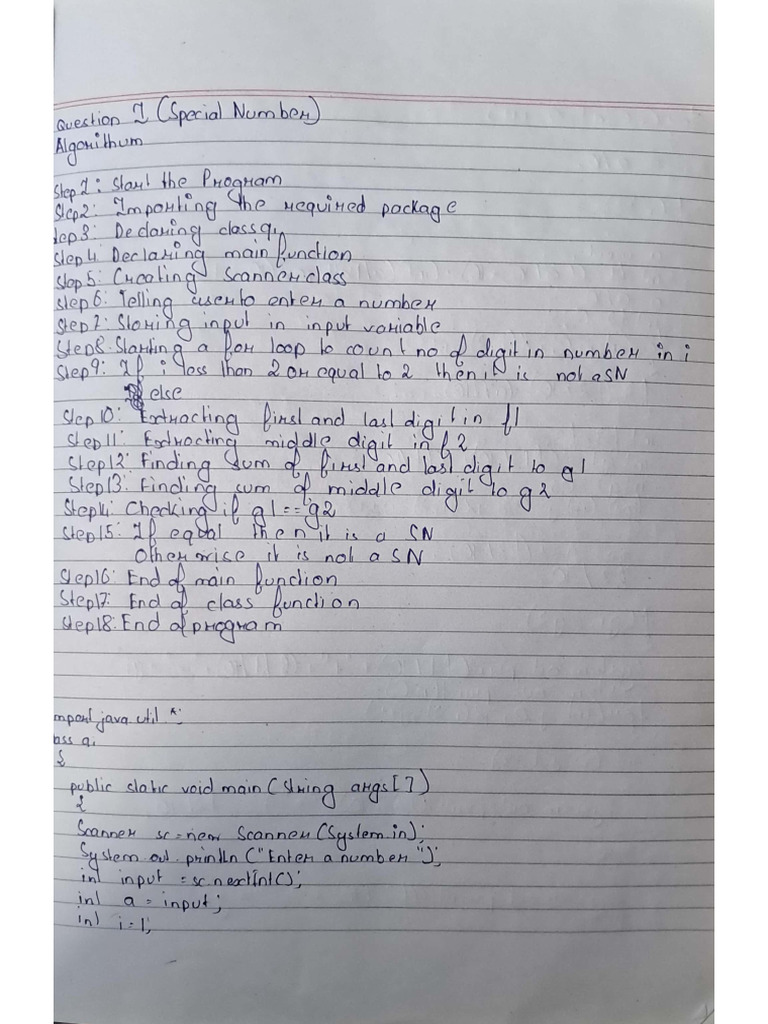 Question 1 (Special Number)
Algorithum
Step1: Start the Program
Step2: Importing the required package
tep3: Declaring class q1
Step4 Declaring main function
Step5: Creating Scanner class
Step6: Telling user to enter a number
Step7: Storing input in input variable
Step8. Starting a for loop to count no of digit in number in i
Step9: If i less than 2 or equal to 2 then it is not a SN
else
Step10: Extracting first and last digit in f1
Step11: Extracting middle digit in f2
Step12: Finding sum of first and last digit to g1
Step13: Finding sum of middle digit to g2
Step14: Checking if g1 == g2
Step15: If equal then it is a SN
Otherwise it is not a SN
Step16: End of main function
Step17: End of class function
Step18: End of program
mport java util *;
ass q1
{
public static void main (String args[])
{
Scanner sc = new Scanner (System.in);
System out. println ("Enter a number");
int input = sc.nextInt();
int a = input;
int i=1;